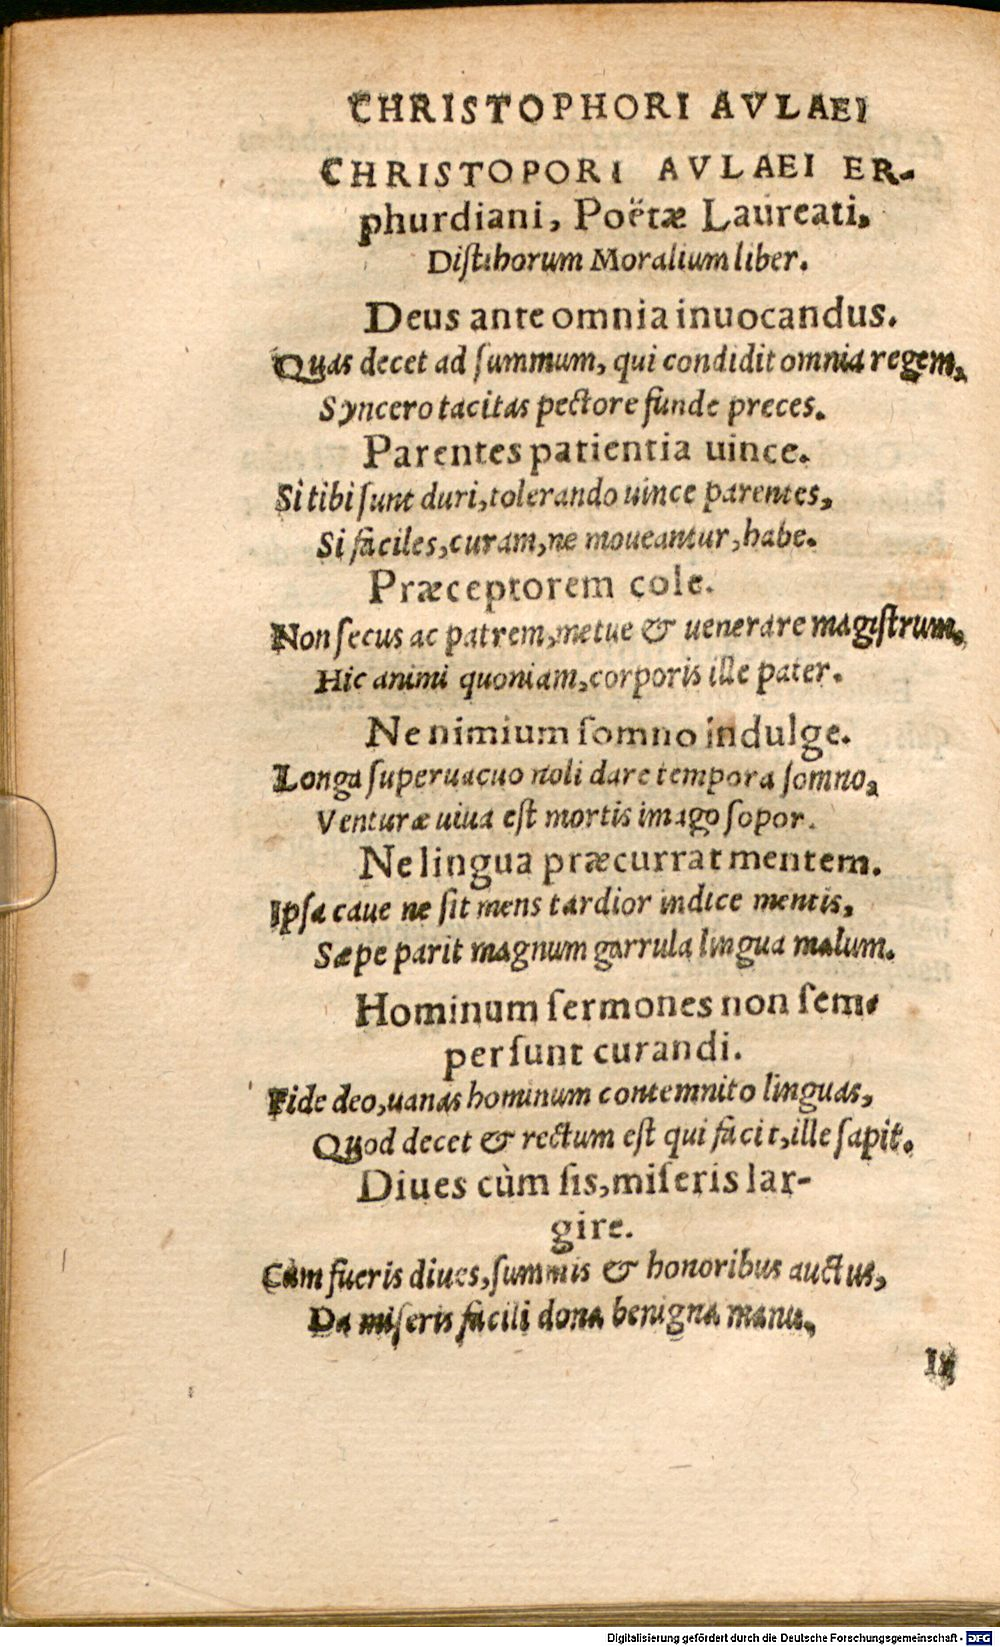 CHRISTOPHORI AVLAEI
CHRISTOPORI AVLAEI ER-
phurdiani, Poëtæ Laureati,
Diſtihorum Moralium liber.
Deus ante omnia inuocandus.
Quas decet ad ſummum, qui condidit omnia regem,
Syncero tacitas pectore funde preces.
Parentes patientia uince.
Si tibi ſunt duri, tolerando uince parentes,
Si faciles, curam, ne moueantur, habe.
Præceptorem cole.
Non ſecus ac patrem, metue & uenerare magiſtrum,
Hic animi quoniam, corporis ille pater.
Ne nimium ſomno indulge.
Longa ſuperuacuo noli dare tempora ſomno,
Venturæ uiua eſt mortis imago ſopor.
Ne lingua præcurrat mentem.
Ipſa caue ne ſit mens tardior indice mentis,
Sæpe parit magnum garrula lingua malum.
Hominum ſermones non ſem-
per ſunt curandi.
Fide deo, uanas hominum contemnito linguas,
Quod decet & rectum eſt qui facit, ille ſapit.
Diues cùm ſis, miſeris lar-
gire.
Cùm fueris diues, ſummis & honoribus auctus,
Da miſeris facili dona benigna manu.
Digitalisierung gefördert durch die Deutsche Forschungsgemeinschaft - DFG